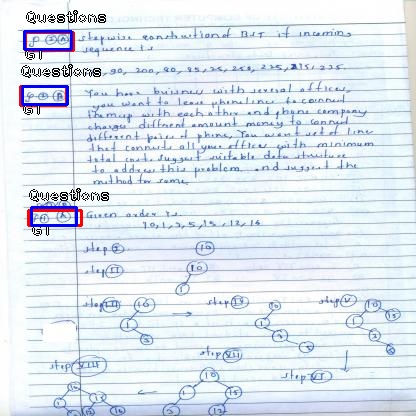 Questions
Q 2 A stepwise construction of BST if incoming
G1 sequence is
Questions
90, 200, 80, 85, 25, 250, 225, 215, 235.
Q 2 B You have buisness with several offices,
G1 you want to lease phone line to connect
them up with each other and phone company
charge different amount money to connect
different pairs of phone, You want set of line
that connects all your offices with minimum
total cost. suggest suitable data structure
to address this problem. and suggest the
method for same.
Questions
Q 1 A Given order is
G1 10, 1, 3, 5, 15, 12, 16
step I 10
step II 10
1
step III 10 step IV 10 step V 10
1 1 1 15
3 3 3
5 5
step VIII step VII step VI
10 10
1 15 1 15
3 12 16 3 12